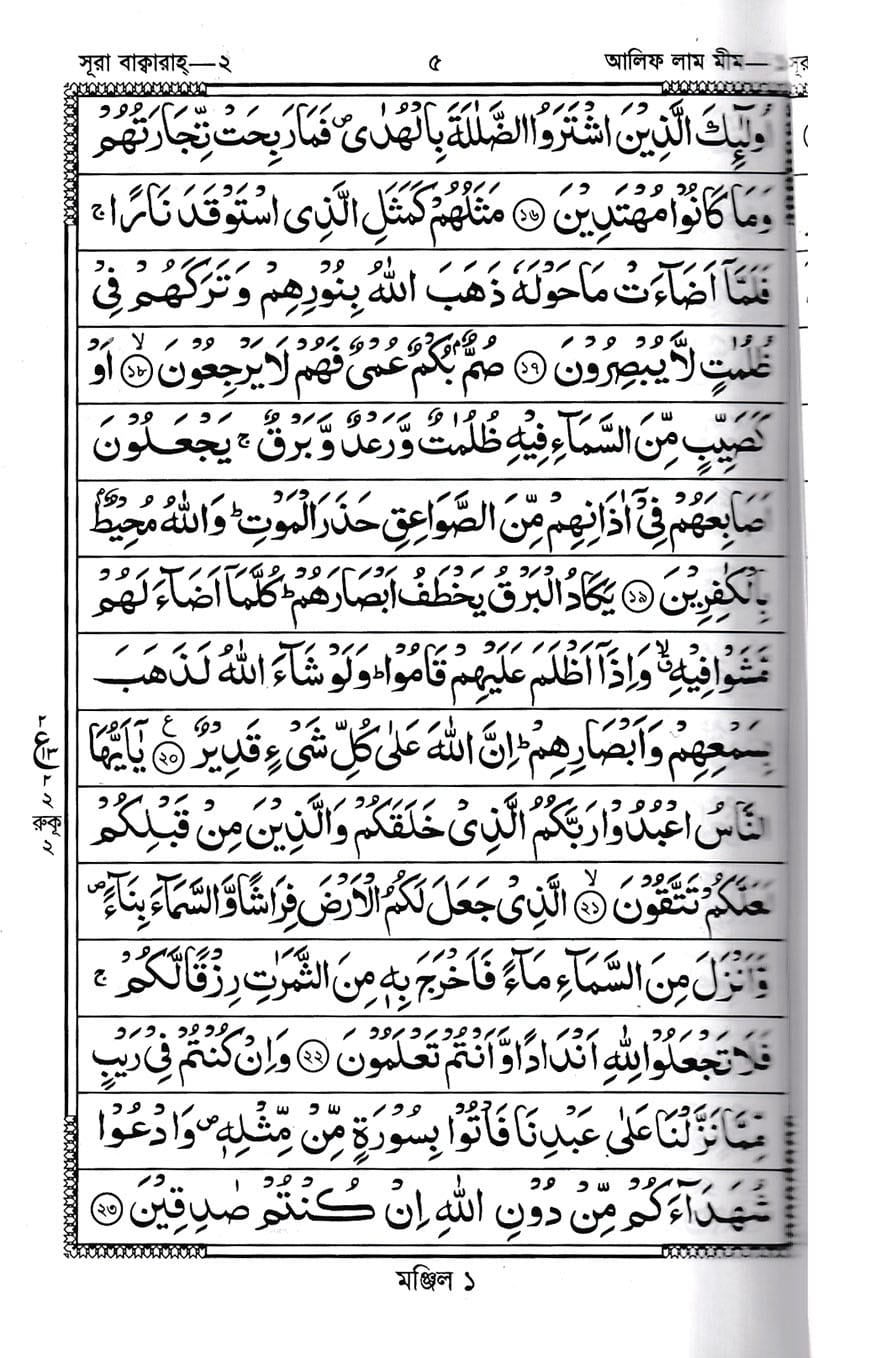 সূরা বাক্বারাহ্—২ ৫ আলিফ লাম মীম—
اُولٰٓئِكَ الَّذِيْنَ اشْتَرَوُا الضَّلٰلَةَ بِالْهُدٰى ص فَمَا رَبِحَتْ تِّجَارَتُهُمْ
وَمَا كَانُوْا مُهْتَدِيْنَ ১৬ مَثَلُهُمْ كَمَثَلِ الَّذِى اسْتَوْقَدَ نَارًا ج
فَلَمَّآ اَضَآءَتْ مَا حَوْلَهٗ ذَهَبَ اللّٰهُ بِنُوْرِهِمْ وَتَرَكَهُمْ فِىْ
ظُلُمٰتٍ لَّا يُبْصِرُوْنَ ১৭ صُمٌّۢ بُكْمٌ عُمْىٌ فَهُمْ لَا يَرْجِعُوْنَ ১৮ لا اَوْ
كَصَيِّبٍ مِّنَ السَّمَآءِ فِيْهِ ظُلُمٰتٌ وَّرَعْدٌ وَّبَرْقٌ ج يَجْعَلُوْنَ
صَابِعَهُمْ فِىْٓ اٰذَانِهِمْ مِّنَ الصَّوَاعِقِ حَذَرَ الْمَوْتِ ط وَاللّٰهُ مُحِيْطٌۢ
بِالْكٰفِرِيْنَ ১৯ يَكَادُ الْبَرْقُ يَخْطَفُ اَبْصَارَهُمْ ط كُلَّمَآ اَضَآءَ لَهُمْ
مَّشَوْا فِيْهِ لا وَاِذَآ اَظْلَمَ عَلَيْهِمْ قَامُوْا ط وَلَوْ شَآءَ اللّٰهُ لَذَهَبَ
بِسَمْعِهِمْ وَاَبْصَارِهِمْ ط اِنَّ اللّٰهَ عَلٰى كُلِّ شَىْءٍ قَدِيْرٌ ২০ ع يٰٓاَيُّهَا
النَّاسُ اعْبُدُوْا رَبَّكُمُ الَّذِىْ خَلَقَكُمْ وَالَّذِيْنَ مِنْ قَبْلِكُمْ
لَعَلَّكُمْ تَتَّقُوْنَ ২১ لا الَّذِىْ جَعَلَ لَكُمُ الْاَرْضَ فِرَاشًا وَّالسَّمَآءَ بِنَآءً ص
وَّاَنْزَلَ مِنَ السَّمَآءِ مَآءً فَاَخْرَجَ بِهٖ مِنَ الثَّمَرٰتِ رِزْقًا لَّكُمْ ج
فَلَا تَجْعَلُوْا لِلّٰهِ اَنْدَادًا وَّاَنْتُمْ تَعْلَمُوْنَ ২২ وَاِنْ كُنْتُمْ فِىْ رَيْبٍ
مِّمَّا نَزَّلْنَا عَلٰى عَبْدِنَا فَاْتُوْا بِسُوْرَةٍ مِّنْ مِّثْلِهٖ ص وَادْعُوْا
شُهَدَآءَكُمْ مِّنْ دُوْنِ اللّٰهِ اِنْ كُنْتُمْ صٰدِقِيْنَ ২৩
ع
২
রুকূ
২
মঞ্জিল ১